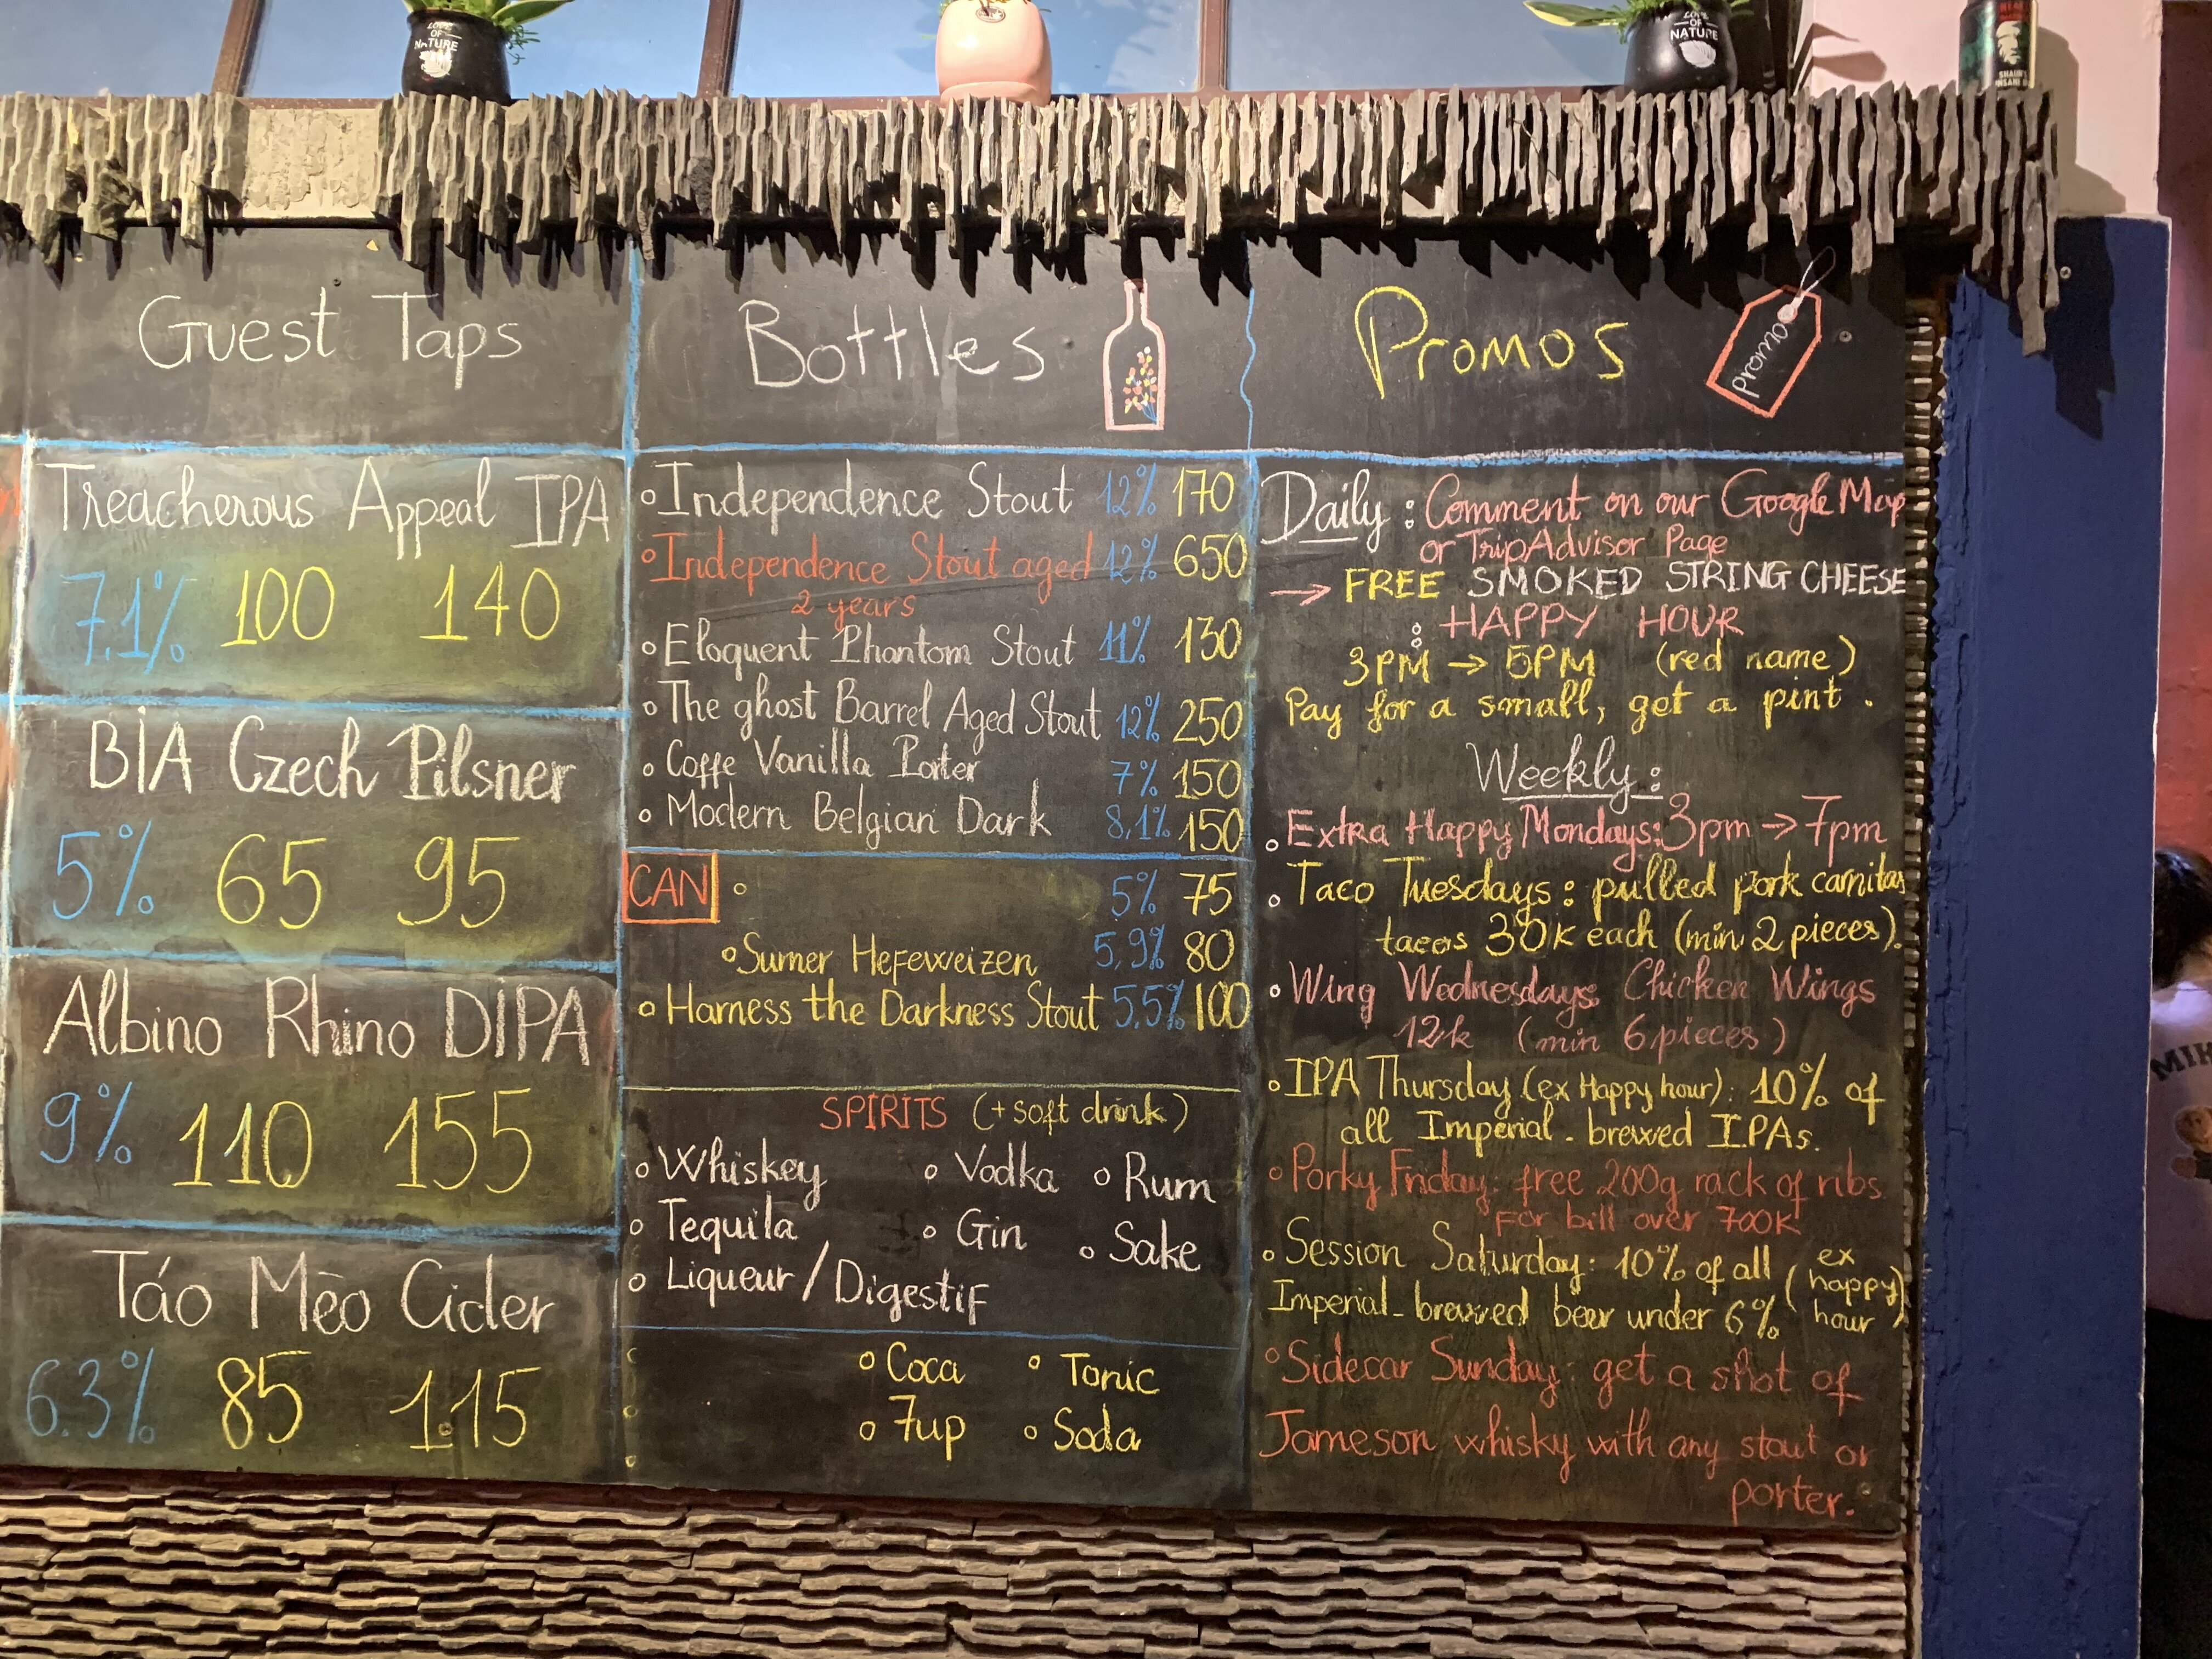 LOVE
OF
NATURE
LOVE
OF
NATURE
Guest Taps
Treacherous Appeal IPA
7.1% 100 140
BIA Czech Pilsner
5% 65 95
Albino Rhino DIPA
9% 110 155
Táo Mèo Cider
6.3% 85 115
Bottles
Independence Stout 12% 170
Independence Stout aged 12% 650
2 years
Eloquent Phantom Stout 11% 130
The ghost Barrel Aged Stout 12% 250
Coffe Vanilla Porter 7% 150
Modern Belgian Dark 8,1% 150
CAN 5% 75
Sumer Hefeweizen 5,9% 80
Harness the Darkness Stout 5,5% 100
SPIRITS (+ soft drink)
Whiskey Vodka Rum
Tequila Gin Sake
Liqueur / Digestif
Coca Tonic
7up Soda
Promos
promo
Daily : Comment on our Google Map
or TripAdvisor Page
→ FREE SMOKED STRING CHEESE
: HAPPY HOUR
3PM → 5PM (red name)
Pay for a small, get a pint.
Weekly :
Extra Happy Mondays: 3pm → 7pm
Taco Tuesdays : pulled pork carnitas
tacos 35k each (min 2 pieces).
Wing Wednesdays: Chicken Wings
12k (min 6 pieces)
IPA Thursday (ex Happy hour): 10% of
all Imperial-brewed IPAs.
Porky Friday: free 200g rack of ribs
for bill over 700K
Session Saturday: 10% of all (ex happy hour)
Imperial-brewed beer under 6%
Sidecar Sunday: get a shot of
Jameson whisky with any stout or
porter.